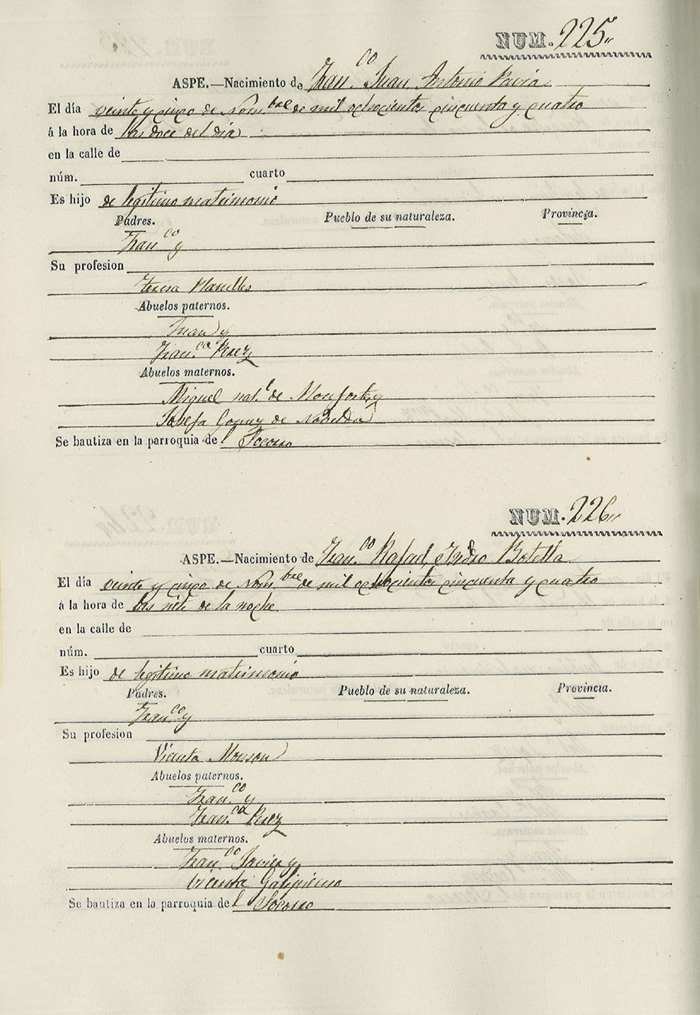 NUM. 225
ASPE.—Nacimiento de Fran.co Juan Antonio Pavia
El día veinte y cinco de Nov.bre de mil ochocientos cincuenta y cuatro
á la hora de las doce del dia
en la calle de
núm. cuarto
Es hijo de legitimo matrimonio
Padres. Pueblo de su naturaleza. Provincia.
Fran.co y
Su profesion
Teresa
Abuelos paternos.
Juan y
Fran.ca Perez
Abuelos maternos.
Miguel nat.l de Monforte y
Josefa Gomez de Novelda
Se bautiza en la parroquia de l Socorro
NUM. 226
ASPE.—Nacimiento de Fran.co Rafael Botella
El día veinte y cinco de Nov.bre de mil ochocientos cincuenta y cuatro
á la hora de las siete de la noche
en la calle de
núm. cuarto
Es hijo de legitimo matrimonio
Padres. Pueblo de su naturaleza. Provincia.
Fran.co y
Su profesion
Vicenta
Abuelos paternos.
Fran.co y
Fran.ca Perez
Abuelos maternos.
Fran.co Javier y
Vicenta
Se bautiza en la parroquia de l Socorro